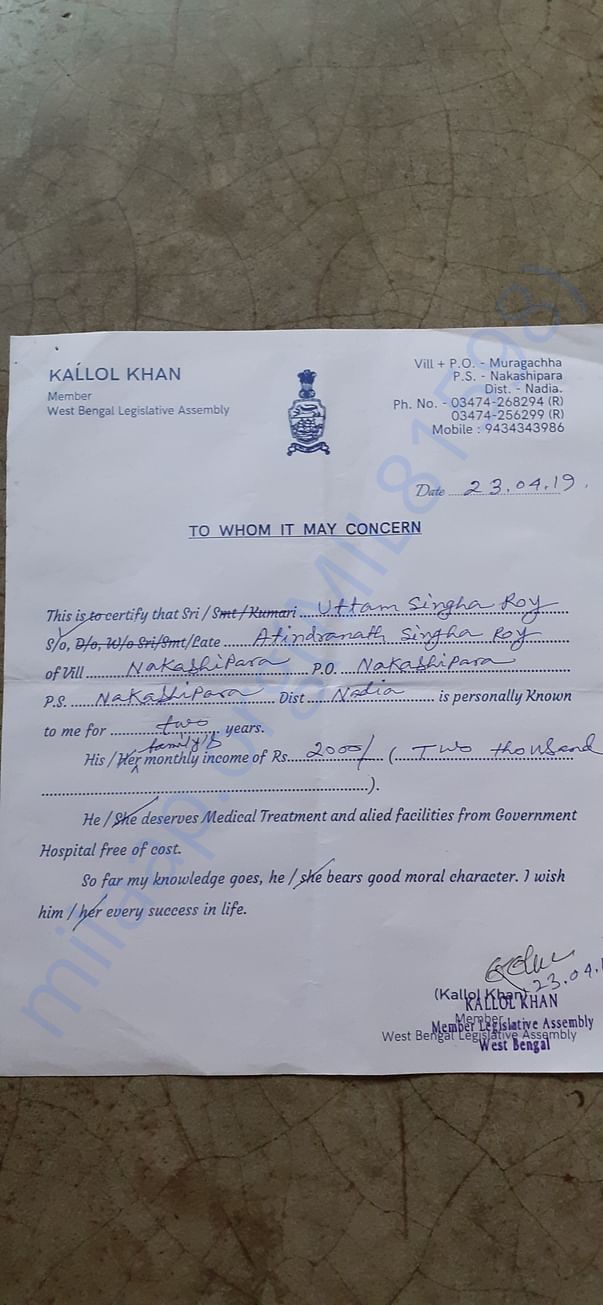 KALLOL KHAN
Member
West Bengal Legislative Assembly
Vill + P.O. - Muragachha
P.S. - Nakashipara
Dist. - Nadia.
Ph. No. - 03474-268294 (R)
03474-256299 (R)
Mobile : 9434343986
Date 23.04.19.
TO WHOM IT MAY CONCERN
This is to certify that Sri / Smt / Kumari Uttam Singha Roy
S/o, D/o, W/o Sri/Smt/Late Atindranath Singha Roy
of Vill Nakashipara P.O. Nakashipara
P.S. Nakashipara Dist Nadia is personally Known
to me for two years.
family's
His / Her monthly income of Rs. 2000/ (Two thousand
).
He / She deserves Medical Treatment and alied facilities from Government
Hospital free of cost.
So far my knowledge goes, he / she bears good moral character. I wish
him / her every success in life.
23.04.1
(Kallol Khan)
KALLOL KHAN
Member
Member Legislative Assembly
West Bengal Legislative Assembly
West Bengal
milaap.org(MIL81598)